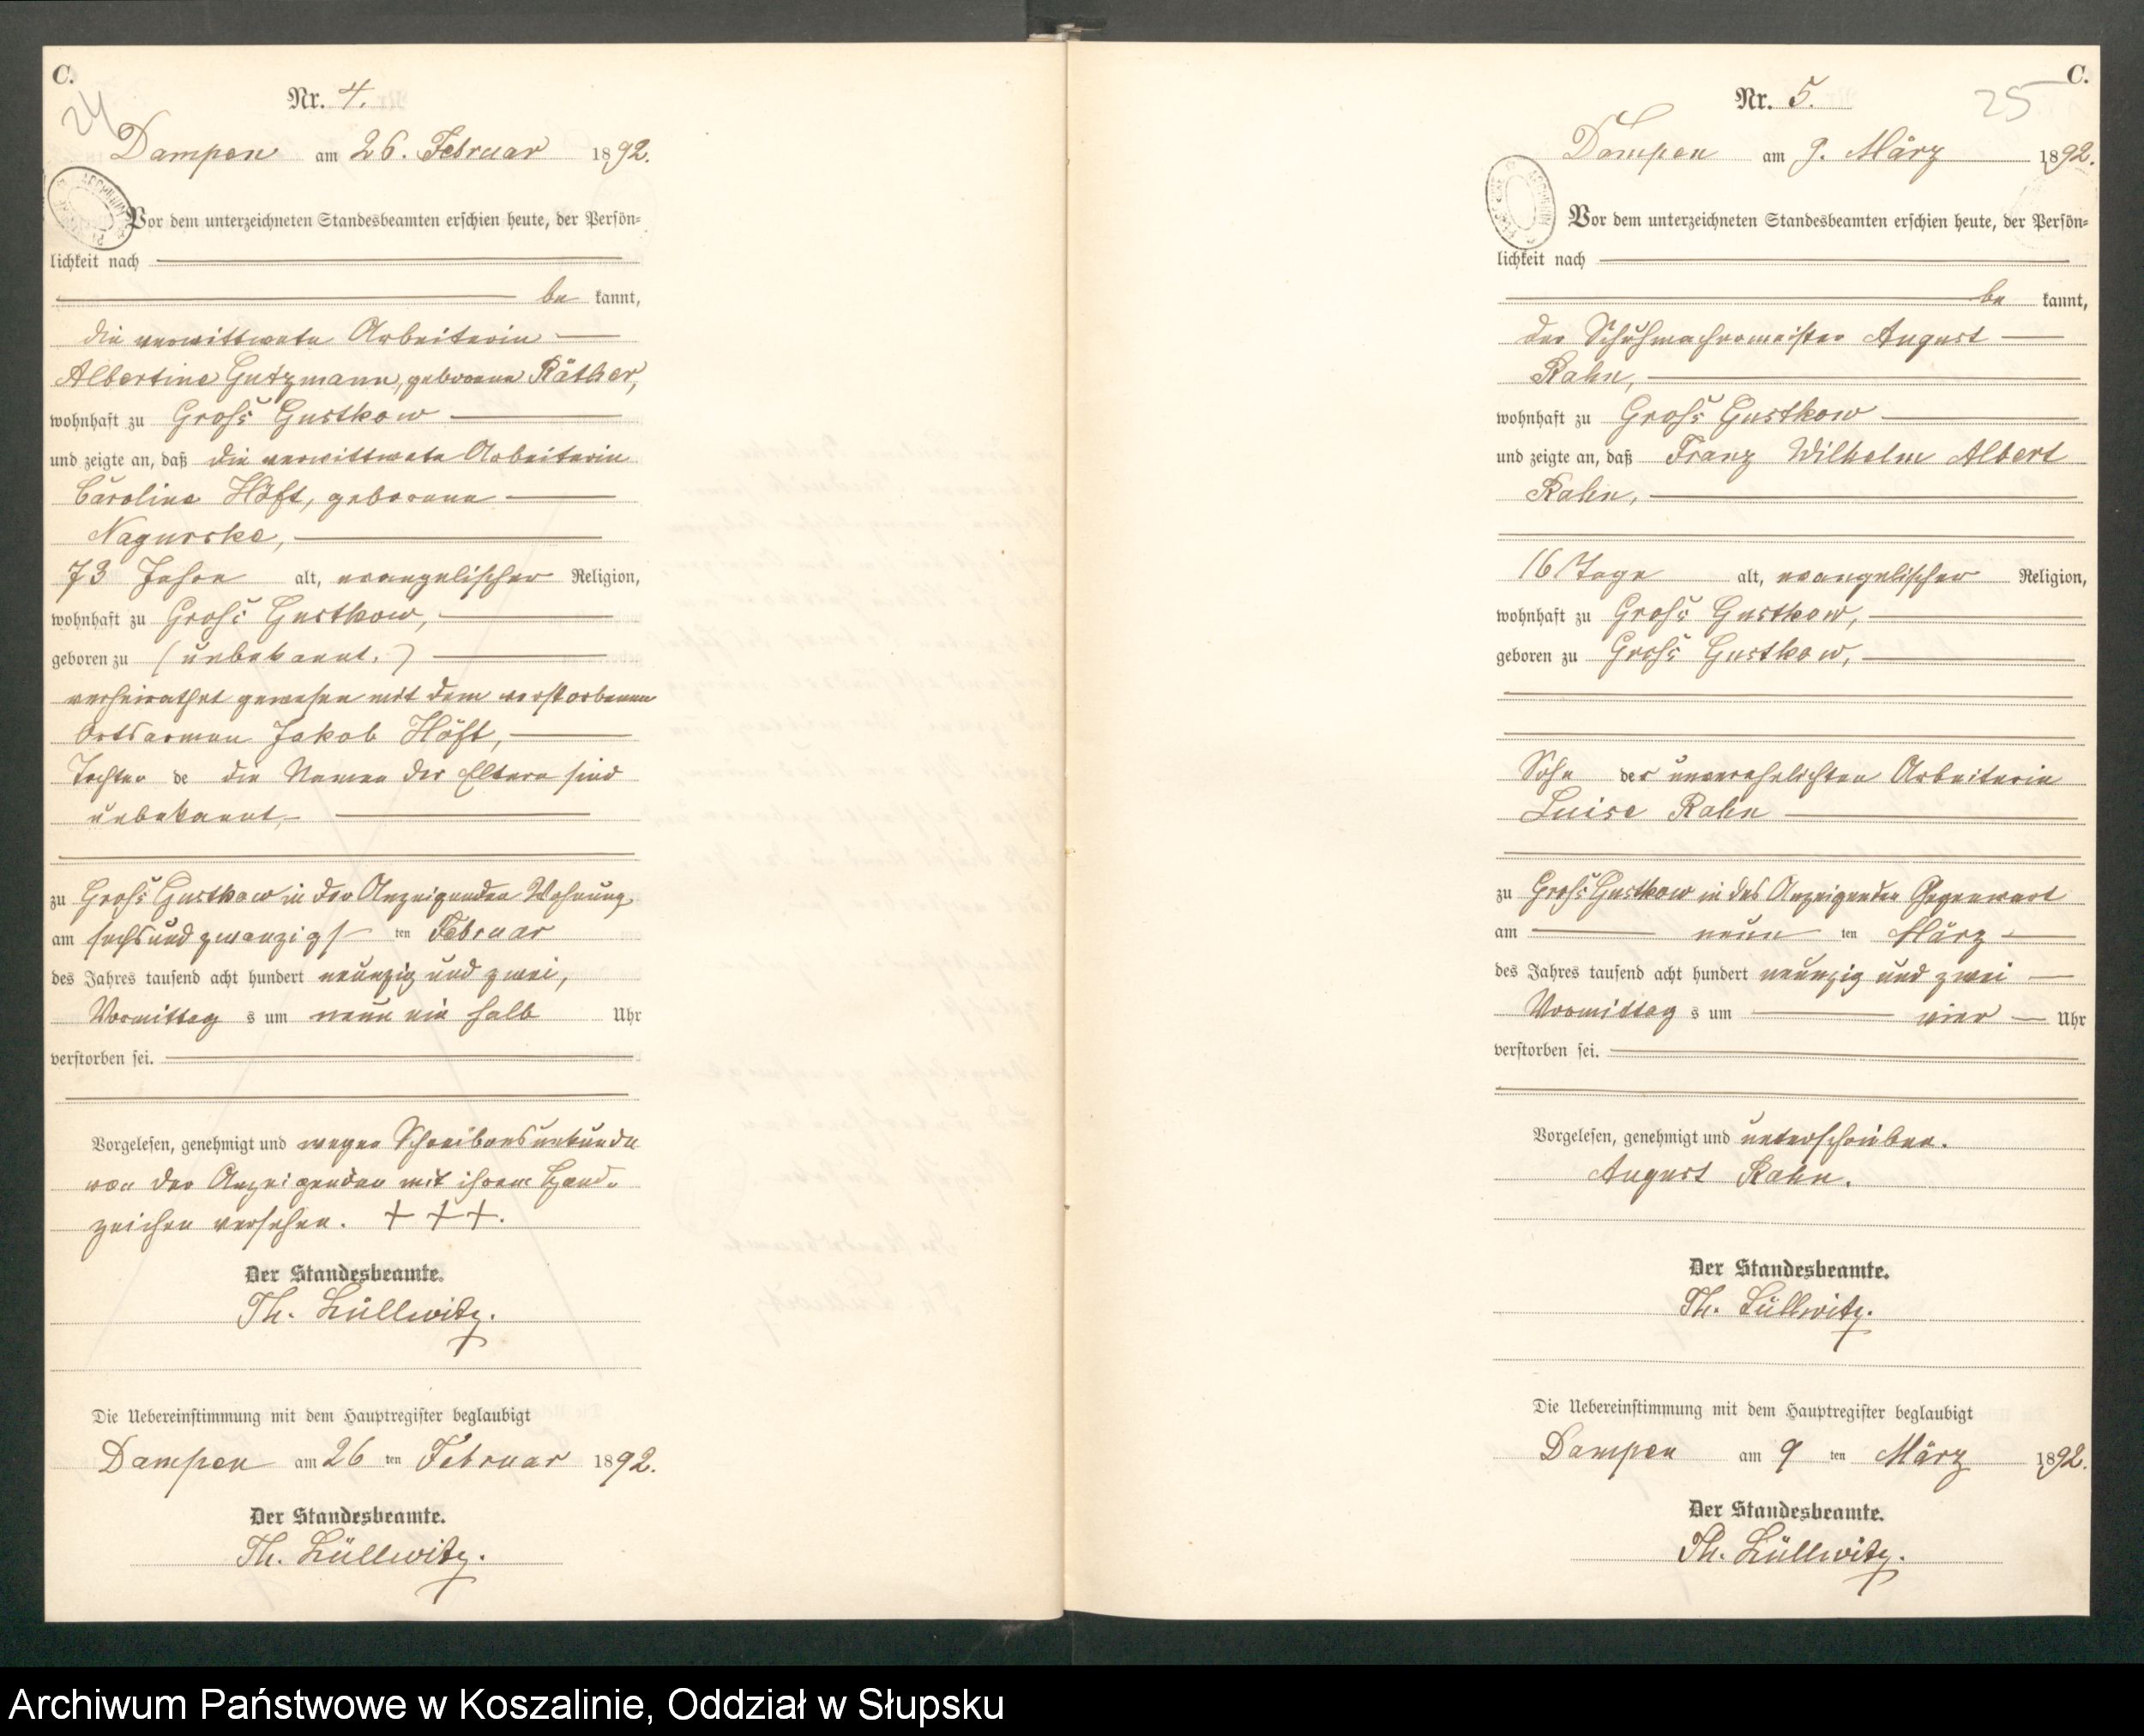 C.
24
Nr. 4.
Dampen am 26. Februar 1892.
Vor dem unterzeichneten Standesbeamten erschien heute, der Persön-
lichkeit nach
be kannt,
die verwittwete Arbeiterin
Albertine Gutzmann, geborene Räther,
wohnhaft zu Gross Gustkow
und zeigte an, daß die verwittwete Arbeiterin
Caroline Höft, geborene
Nagurske,
73 Jahre alt, evangelischer Religion,
wohnhaft zu Gross Gustkow,
geboren zu (unbekannt.)
verheirathet gewesen mit dem verstorbenen
Ortsarmen Jakob Höft,
Tochter de die Namen der Eltern sind
unbekannt,
zu Gross Gustkow in der Anzeigenden Wohnung
am sechsundzwanzigs ten Februar
des Jahres tausend acht hundert neunzig und zwei,
Vormittag s um neun ein halb Uhr
verstorben sei.
Vorgelesen, genehmigt und wegen Schreibensunkunde
von der Anzeigenden mit ihrem Hand-
zeichen versehen. + + +.
Der Standesbeamte.
Th. Lüllwitz.
Die Uebereinstimmung mit dem Hauptregister beglaubigt
Dampen am 26 ten Februar 1892.
Der Standesbeamte.
Th. Lüllwitz.
C.
25
Nr. 5.
Dampen am 9. März 1892.
Vor dem unterzeichneten Standesbeamten erschien heute, der Persön-
lichkeit nach
be kannt,
der Schuhmachermeister August
Rahn,
wohnhaft zu Gross Gustkow
und zeigte an, daß Franz Wilhelm Albert
Rahn,
16 Tage alt, evangelischer Religion,
wohnhaft zu Gross Gustkow,
geboren zu Gross Gustkow,
Sohn der unverehelichten Arbeiterin
Luise Rahn
zu Gross Gustkow in des Anzeigenden Gegenwart
am neun ten März
des Jahres tausend acht hundert neunzig und zwei
Vormittag s um vier Uhr
verstorben sei.
Vorgelesen, genehmigt und unterschrieben.
August Rahn.
Der Standesbeamte.
Th. Lüllwitz.
Die Uebereinstimmung mit dem Hauptregister beglaubigt
Dampen am 9 ten März 1892.
Der Standesbeamte.
Th. Lüllwitz.
Archiwum Państwowe w Koszalinie, Oddział w Słupsku